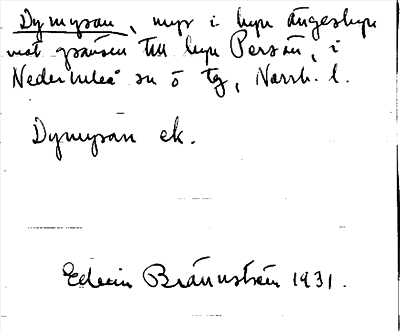 Dymyran, myr i byn Ängesbyn
mot gränsen till byn Persön, i
Nederluleå sn o tg, Norrb. l.
Dymyran ek.
Edwin Brännström 1931.